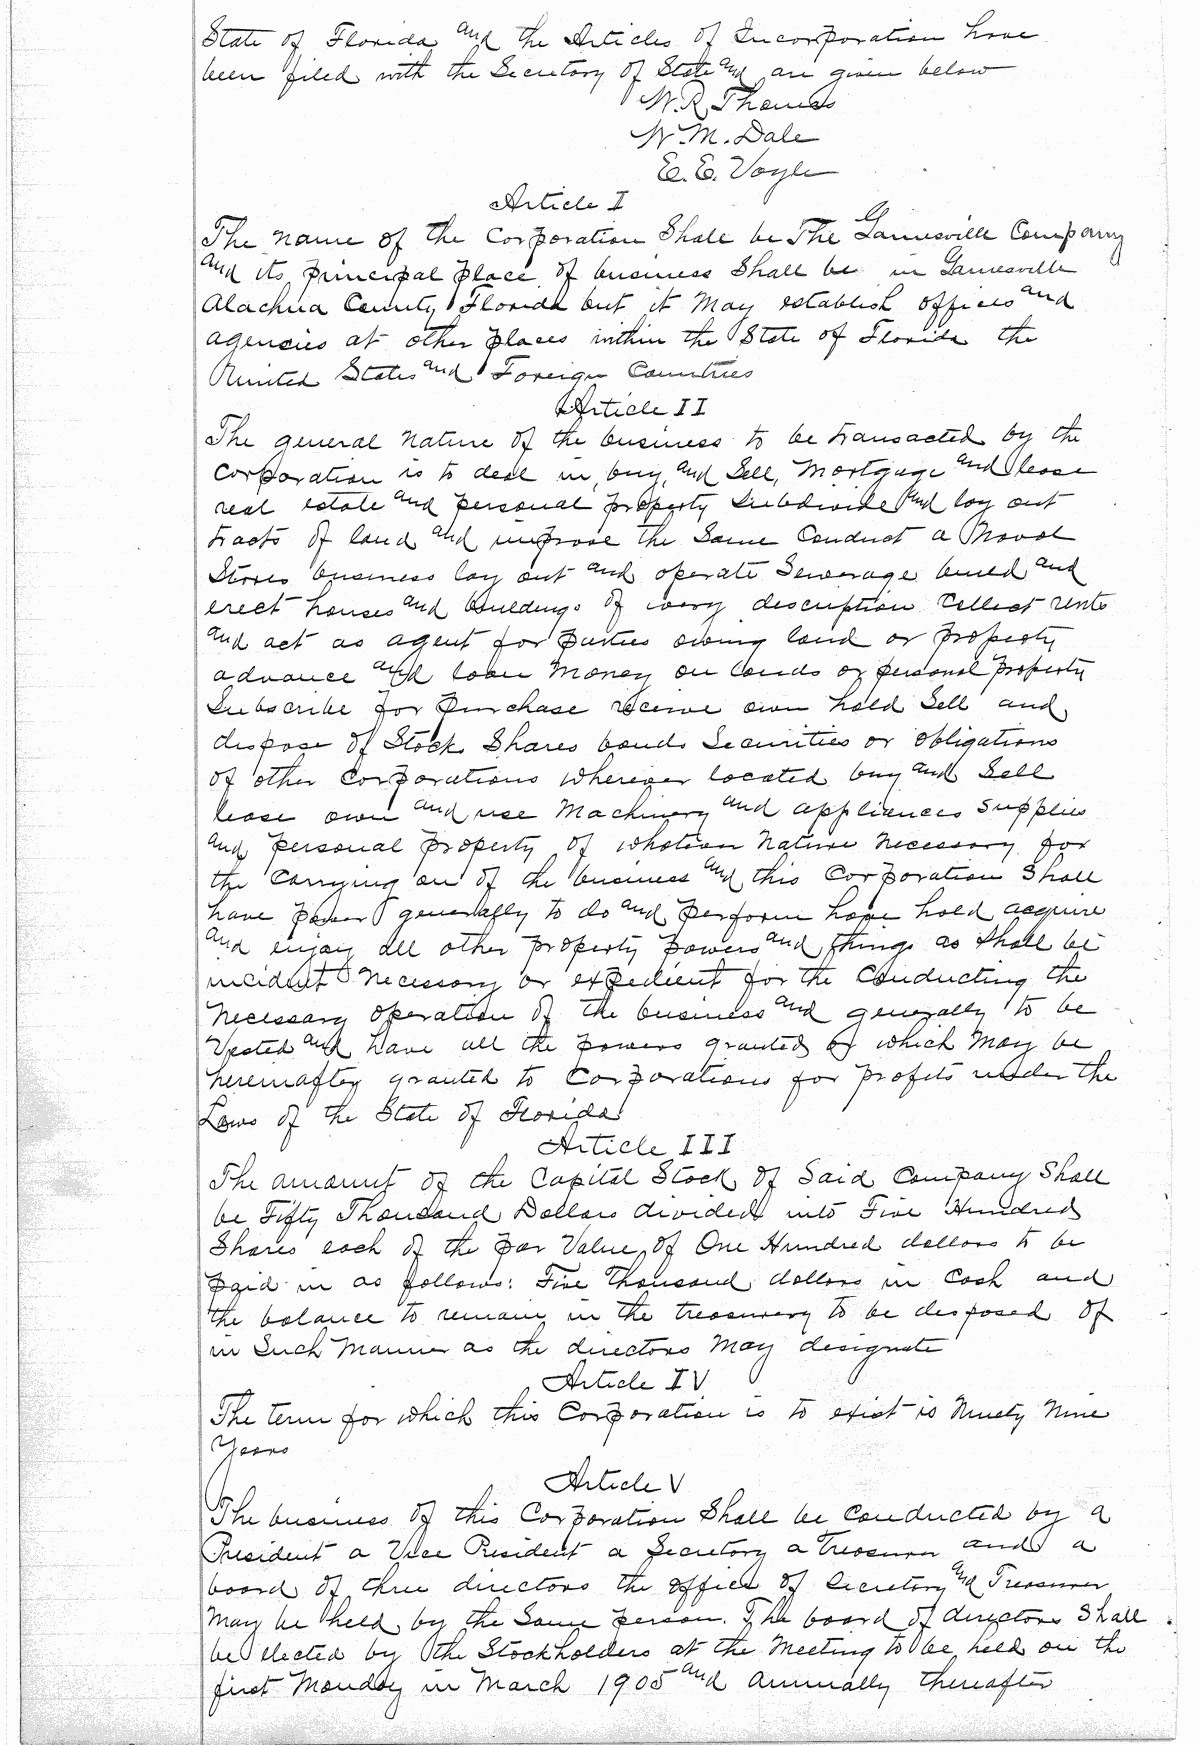 State of Florida and the Articles of Incorporation have
been filed with the Secretary of State and are given below
W. R. Thomas
W. M. Dale
E. E. Voyle
Article I
The name of the Corporation Shall be The Gainesville Company
and its principal place of business Shall be in Gainesville
Alachua County Florida but it May establish offices and
agencies at other places within the State of Florida the
United States and Foreign Countries
Article II
The general Nature of the business to be transacted by the
Corporation is to deal in, buy, and Sell, Mortgage and lease
real estate and personal property Subdivide and lay out
tracts of land and improve the Same Conduct a Naval
Stores business lay out and operate Sewerage build and
erect houses and buildings of every description Collect rents
and act as agent for parties owing land or property
advance and loan Money on lands or personal property
Subscribe for purchase receive own hold Sell and
dispose of Stock Shares bonds Securities or obligations
of other Corporations wherever located buy and Sell
lease own and use Machinery and appliances Supplies
and personal property of whatever Nature Necessary for
the Carrying on of the business and this Corporation Shall
have power generally to do and perform have hold acquire
and enjoy all other property powers and things as Shall be
incident Necessary or expedient for the Conducting the
Necessary operation of the business and generally to be
Vested and have all the powers granted or which May be
hereinafter granted to Corporations for profits under the
Laws of the State of Florida
Article III
The amount of the Capital Stock of Said Company Shall
be Fifty Thousand Dollars divided into Five Hundred
Shares each of the par Value of One Hundred dollars to be
paid in as follows: Five Thousand dollars in Cash and
the balance to remain in the treasurery to be disposed of
in Such Manner as the directors May designate
Article IV
The term for which this Corporation is to exist is Ninety Nine
Years
Article V
The business of this Corporation Shall be Conducted by a
President a Vice President a Secretary a Treasurer and a
board of three directors the office of Secretary and Treasurer
May be held by the Same person. The board of directors Shall
be elected by the Stockholders at the Meeting to be held on the
first Monday in March 1905 and annually thereafter